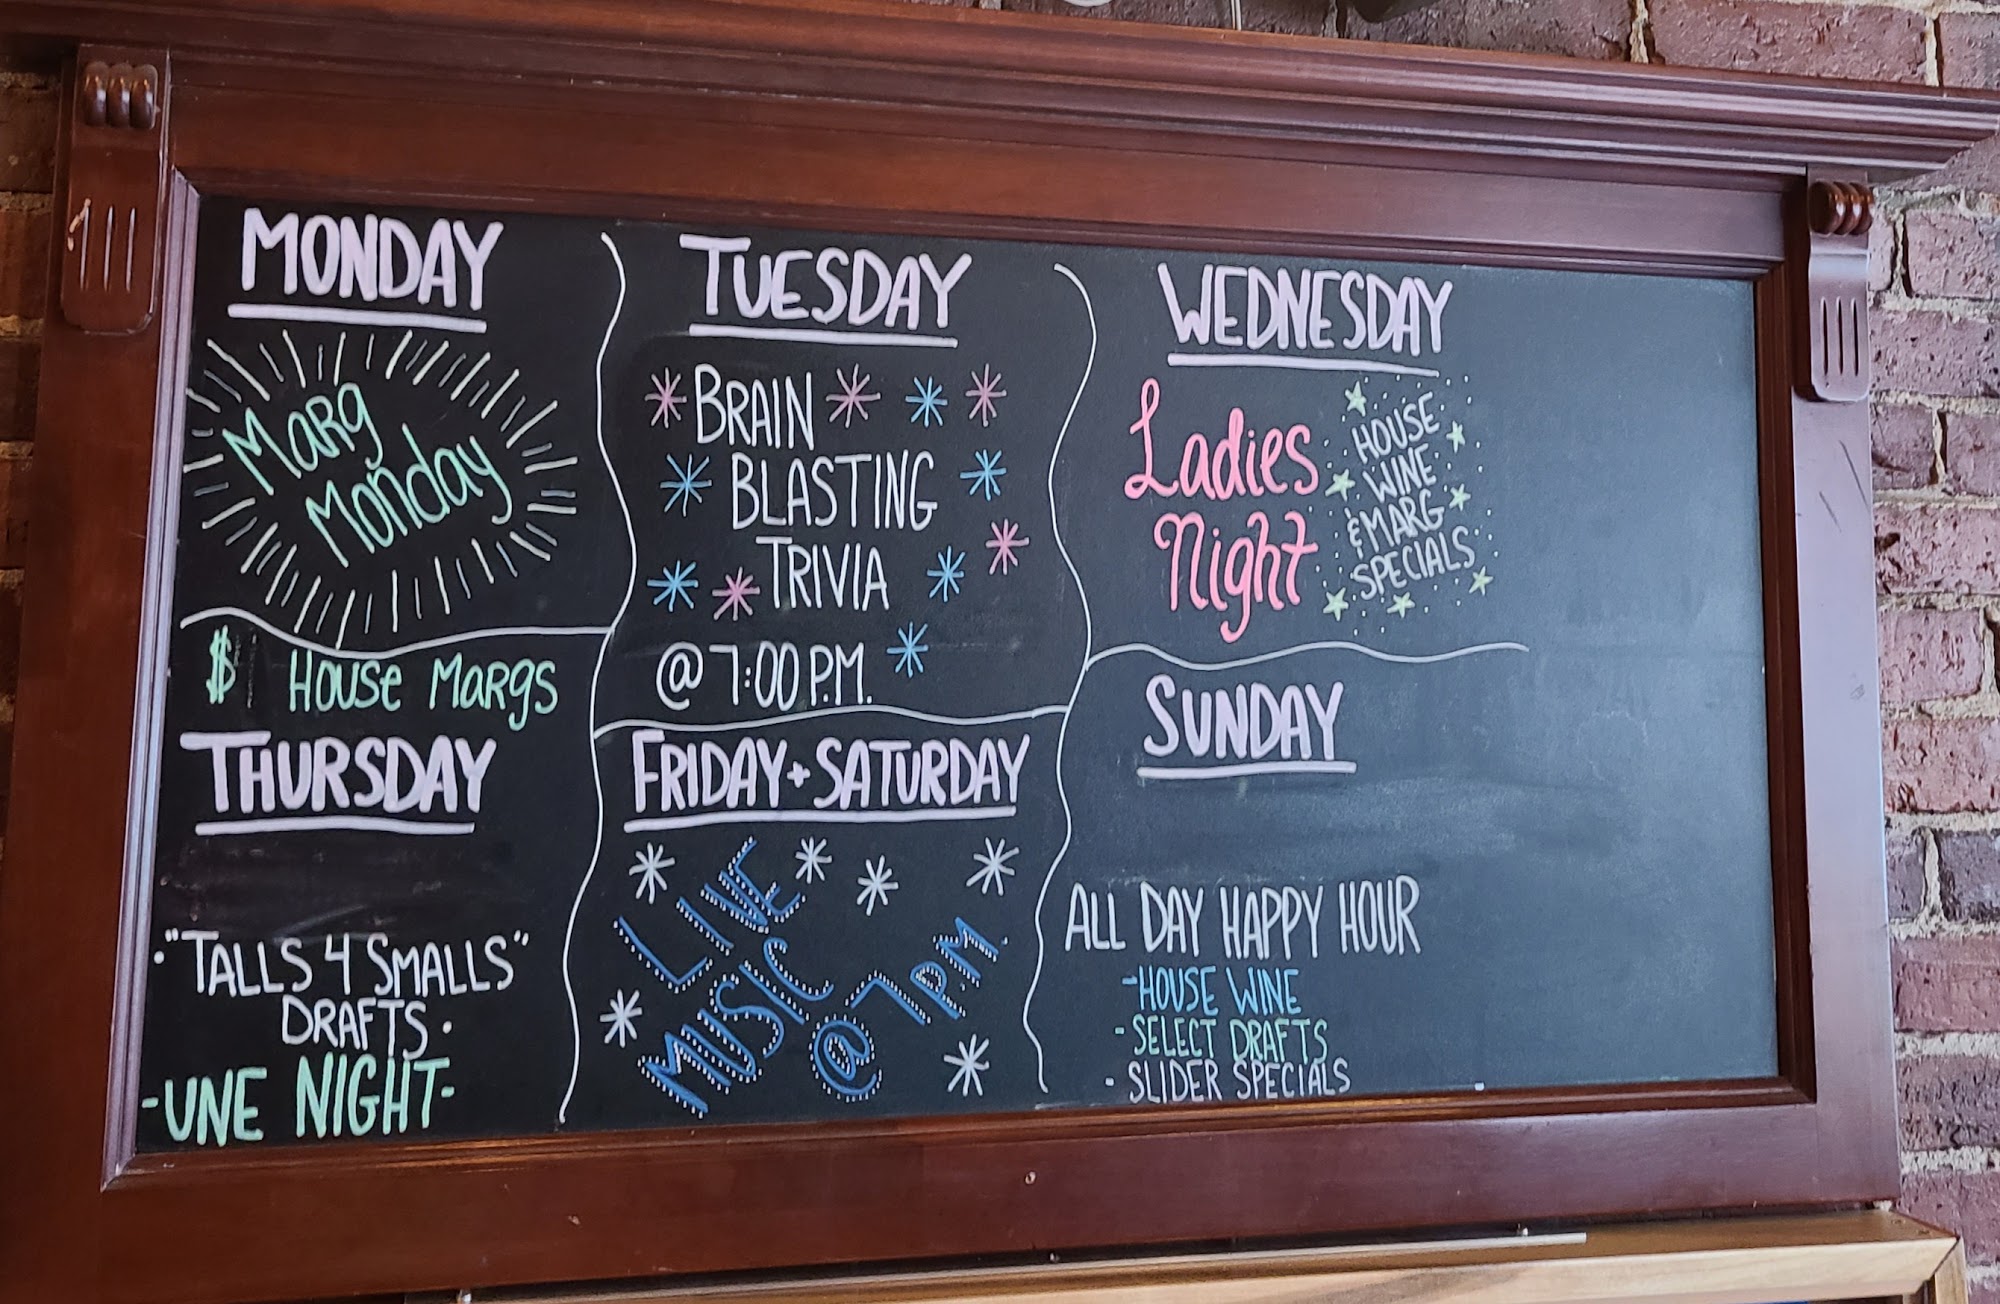 MONDAY
Marg
Monday
$ House Margs
TUESDAY
BRAIN
BLASTING
TRIVIA
@ 7:00 P.M.
WEDNESDAY
Ladies
Night
HOUSE
WINE
& MARG
SPECIALS
THURSDAY
"TALLS 4 SMALLS"
DRAFTS
-UNE NIGHT-
FRIDAY + SATURDAY
LIVE
MUSIC
@ 7 P.M.
SUNDAY
ALL DAY HAPPY HOUR
-HOUSE WINE
-SELECT DRAFTS
- SLIDER SPECIALS